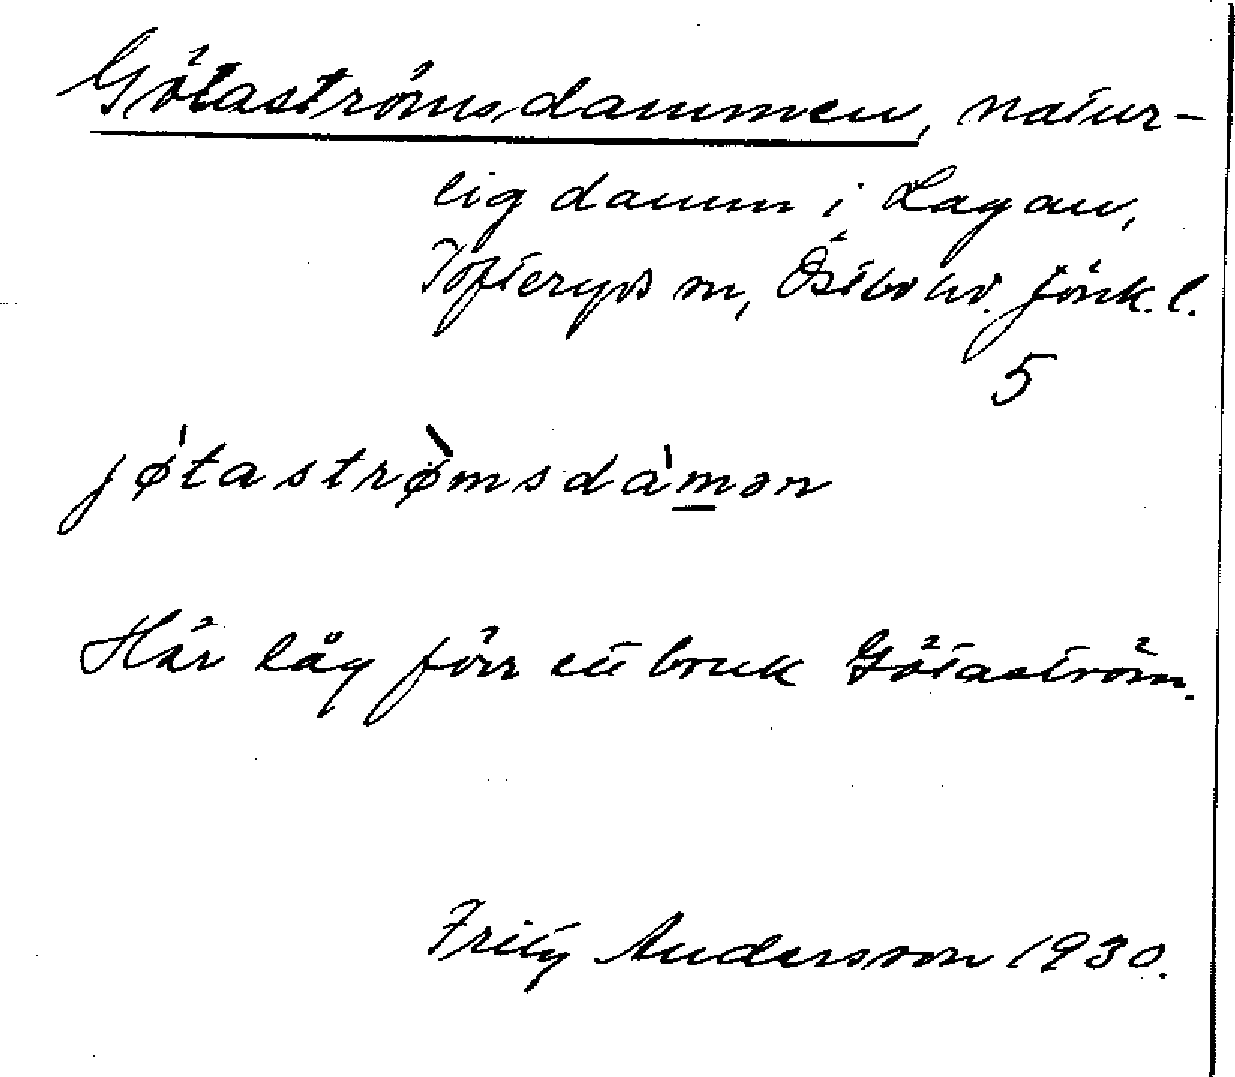 Götaströmsdammen, natur-
lig damm i Lagan,
Tofteryds sn, Östbo hd. Jönk. l.
5
jǿtastrø̀msdámən
Här låg förr ett bruk Götaström.
Fritz Andersson 1930.